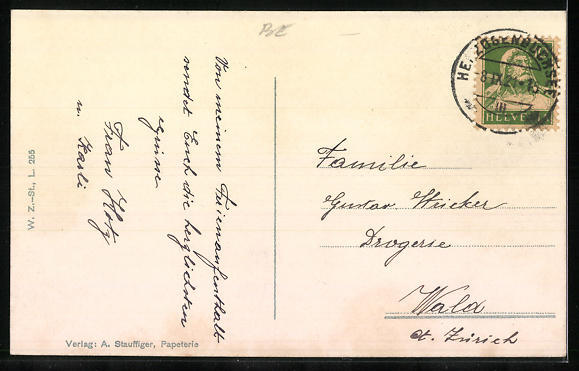 BE
HERZOGENBUCHSEE
HELVETIA
Von meinem Ferienaufenthalt
sendet Euch die herzlichsten
Grüsse
Frau Hotz
u. Karli
Familie
Gustav Weicker
Drogerie
Wald
Ct. Zürich
W. Z.-St., L. 255
Verlag: A. Stauffiger, Papeterie